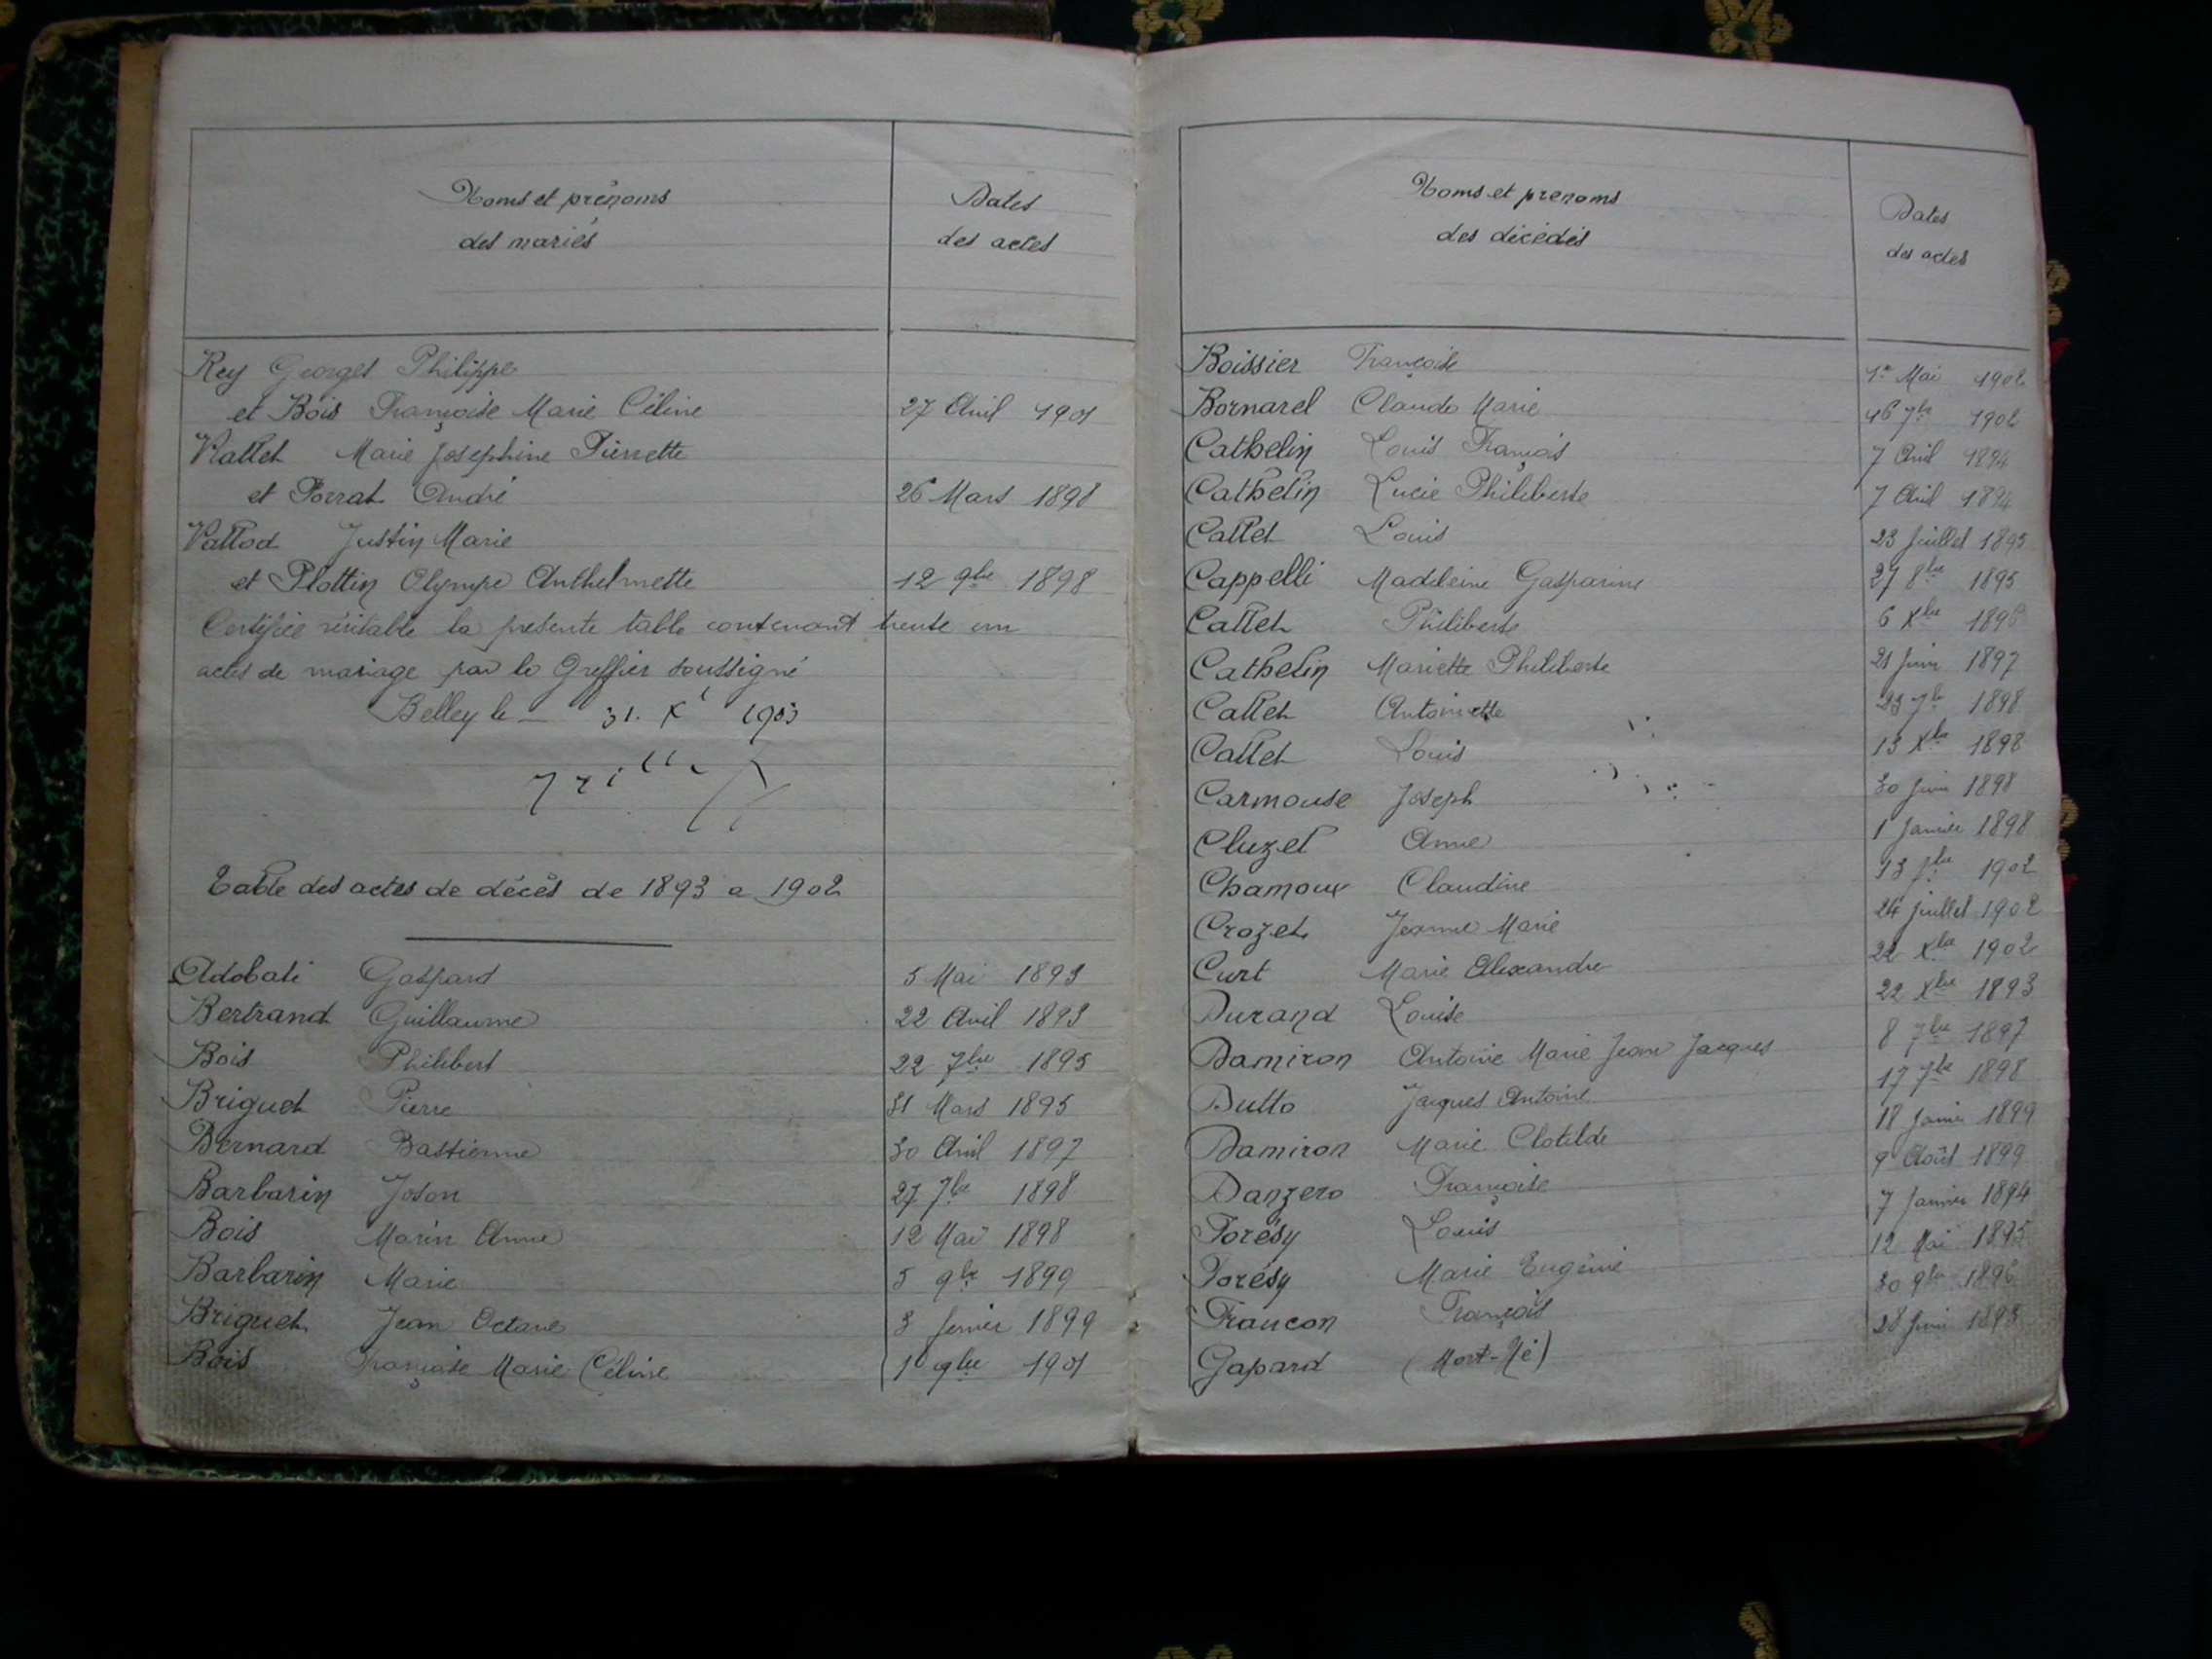 Noms et prénoms
des mariés
Dates
des actes
Rey Georges Philippe
et Bois Françoise Marie Céline 27 Avril 1901
Vallet Marie Josephine Pierrette
et Porrat André 26 Mars 1898
Vallod Justin Marie
et Plottin Olympe Anthelmette 12 9bre 1898
Certifiée véritable la présente table contenant trente un
actes de mariage par le Greffier soussigné
Belley le 31. X 1903
Table des actes de décès de 1893 a 1902
Adobati Gaspard 5 Mai 1893
Bertrand Guillaume 22 Avril 1893
Bois Philibert 22 7bre 1895
Briguet Pierre 31 Mars 1895
Bernard Bastienne 30 Avril 1897
Barbarin Joson 27 7bre 1898
Bois Marin Anne 12 Mai 1898
Barbarin Marie 5 9bre 1899
Briguet Jean Octave 3 fevrier 1899
Bois Françoise Marie Céline 1 9bre 1901
Noms et prenoms
des décédés
Dates
des actes
Boissier Françoise 1er Mai 1902
Bornarel Claude Marie 16 7bre 1902
Cathelin Louis François 7 Avril 1894
Cathelin Lucie Philiberte 7 Avril 1894
Callet Louis 23 Juillet 1895
Cappelli Madeleine Gasparine 27 8bre 1895
Callet Philiberte 6 Xbre 1896
Cathelin Mariette Philiberte 21 Juin 1897
Callet Antoinette 23 7bre 1898
Callet Louis 13 Xbre 1898
Carmouse Joseph 30 Juin 1898
Cluzel Anne 1 Janvier 1898
Chamoux Claudine 13 7bre 1902
Crozet Jeanne Marie 24 Juillet 1902
Curt Marie Alexandre 22 Xbre 1902
Durand Louise 22 Xbre 1893
Damiron Antoine Marie Jean Jacques 8 7bre 1897
Dutto Jacques Antoine 17 7bre 1898
Damiron Marie Clotilde 18 Janvier 1899
Danzero Françoise 9 Août 1899
Forésy Louis 7 Janvier 1894
Forésy Marie Eugénie 12 Mai 1895
Francon François 30 9bre 1896
Gapard (Mort-Né) 28 Juin 1893